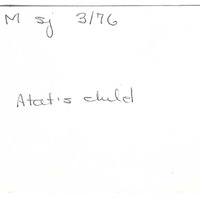 M sj 3/76
Atat's child